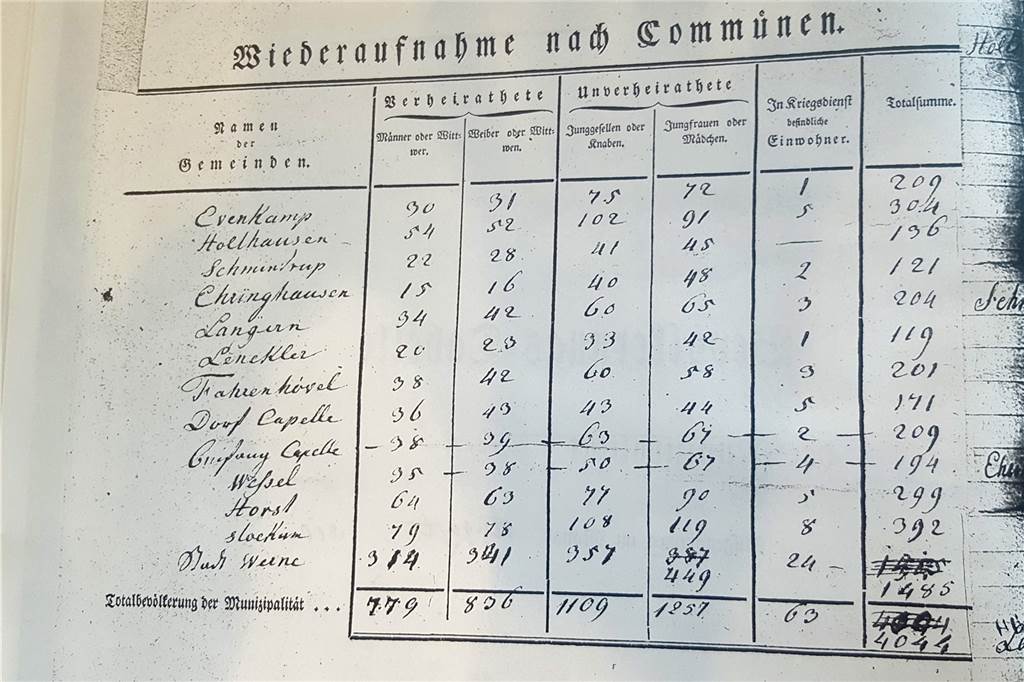 Wiederaufnahme nach Commünen.
Namen der Gemeinden.
Verheirathete
Unverheirathete
Männer oder Wittwer.
Weiber oder Wittwen.
Junggesellen oder Knaben.
Jungfrauen oder Mädchen.
In Kriegsdienst befindliche Einwohner.
Totalsumme.
Evenkamp 30 31 75 72 1 209
Holthausen 54 52 102 91 5 304
Schmintrup 22 28 41 45 — 136
Ehringhausen 15 16 40 48 2 121
Langern 34 42 60 65 3 204
Lenckler 20 23 33 42 1 119
Fahrenhövel 38 42 60 58 3 201
Dorf Capelle 36 43 43 44 5 171
Capelle 38 39 63 67 2 209
Wessel 35 38 50 67 4 194
Horst 64 63 77 90 5 299
Stockum 79 78 108 119 8 392
Stadt Werne 314 341 357 387 24
449 1485
Totalbevölkerung der Munizipalität ... 779 836 1109 1257 63 4004
4044